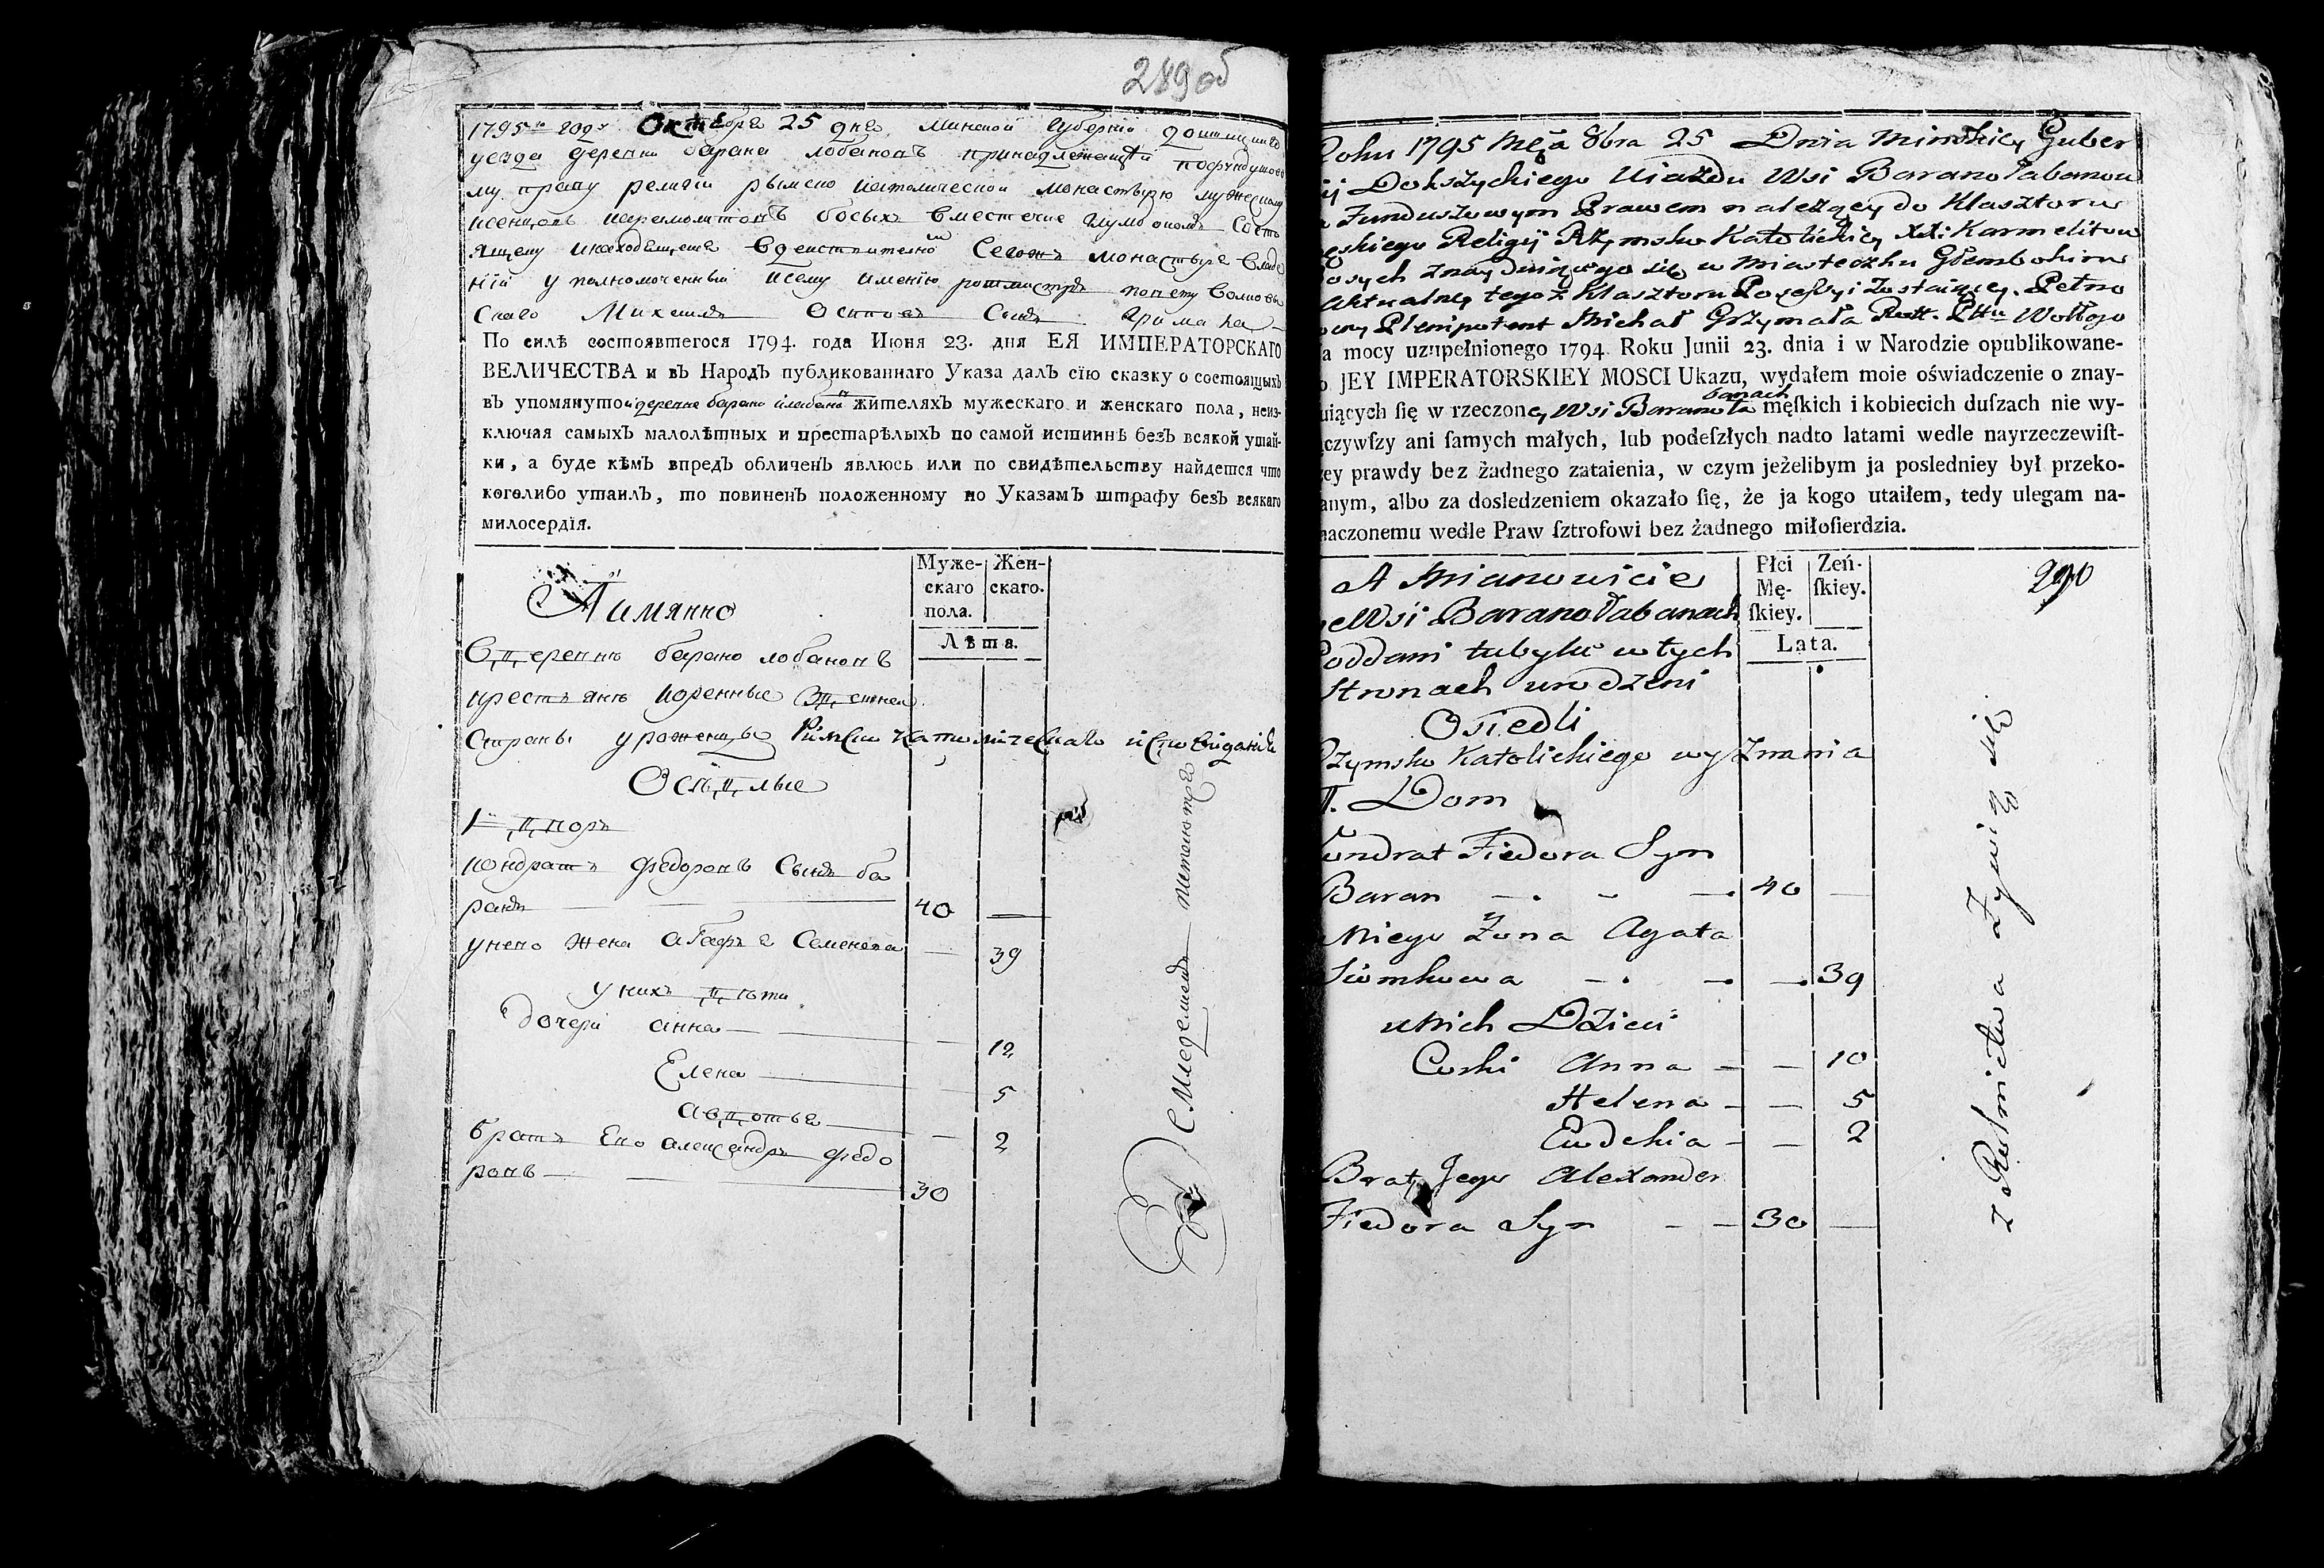 289 об
1795 году Октебре 25 дне Минской Губернии докшицкаго
уезда деревни барано лобановъ принадлежащей пофундушово
му праву религии рымско католической монастырю мужескому
ксенцовъ кармелитовъ босыхъ вместечке глумбокомъ Состо
ящему инаходещемсе вдействителной Сегожъ монастыре владе
нїи уполномоченный ксему имению ротмистръ повету волковы
Скаго Михаилъ Осиповъ Сынъ Гримала
По силѣ состоявшегося 1794. года Июня 23. дня ЕЯ ИМПЕРАТОРСКАГО
ВЕЛИЧЕСТВА и въ Народъ публикованнаго Указа далъ сїю сказку о состоящыхъ
въ упомянутой деревне барано лобановъ жителяхъ мужескаго и женскаго пола, неиз-
ключая самыхъ малолѣтныхъ и престарѣлыхъ по самой истиннѣ безъ всякой утай-
ки, а буде кѣмъ впредъ обличенъ явлюсь или по свидѣтельству найдется что
коголибо утаилъ, то повиненъ положенному по Указамъ штрафу безъ всякаго
милосердїя.
Аимянно
Муже-
скаго
пола.
Жен-
скаго.
Лѣта.
Вдеревне барано лобановъ
крестъяне коренные здешней
Страны уроженцы Римско католическаго исповиданія
Оседлые
1 дворъ
кондратъ федоровъ Сынъ ба
ранъ 40 —
унево жена агафъе Семенова — 39
унихъ дети
дочери анна — 12
Елена — 5
авдотье — 2
братъ Ево александръ федо
ровъ 30
Roku 1795 Mcą 8bra 25 Dnia Minskiey Guber
ij Dokszyckiego Uiazdu Wsi Baranołabanow
Funduszowym Prawem należącey do Klasztoru
ęskiego Religij Rzymsko Katolickiey XX: Karmelitow
osych znayduiącego się w Miasteczku Głembokim
Aktualney tegoż Klasztoru Possessyi Zostaiącey. Pełno
ocny Plenipotent Michał Grzymała Rott. Pttu Wołko
a mocy uzupełnionego 1794 Roku Junii 23. dnia i w Narodzie opublikowane-
o JEY IMPERATORSKIEY MOSCI Ukazu, wydałem moie oświadczenie o znay-
uiących ſię w rzeczoney Wsi Baranołabanach męſkich i kobiecich duſzach nie wy-
ączywſzy ani ſamych małych, lub podeſzłych nadto latami wedle nayrzeczewiſt-
zey prawdy bez żadnego zataienia, w czym jeżelibym ja posledniey był przeko-
anym, albo za dosledzeniem okazało ſię, że ja kogo utaiłem, tedy ulegam na-
naczonemu wedle Praw ſztrofowi bez żadnego miłoſierdzia.
A Mianowicie
Płci
Mę-
ſkiey.
Zeń-
ſkiey.
Lata.
290
we Wsi Baranołabanach
Poddani tubylci w tych
Stronach urodzeni
Osiedli
Rzymsko Katolickiego wyznania
1. Dom
Kondrat Fiedora Syn
Baran 40 —
u Niego Żona Agata
Siomkowa — 39
u Nich Dzieci
Curki Anna — 10
Helena — 5
Eudokia — 2
Brat Jego Alexander
Fiedora Syn 30 —
z Rolnictwa żywią się